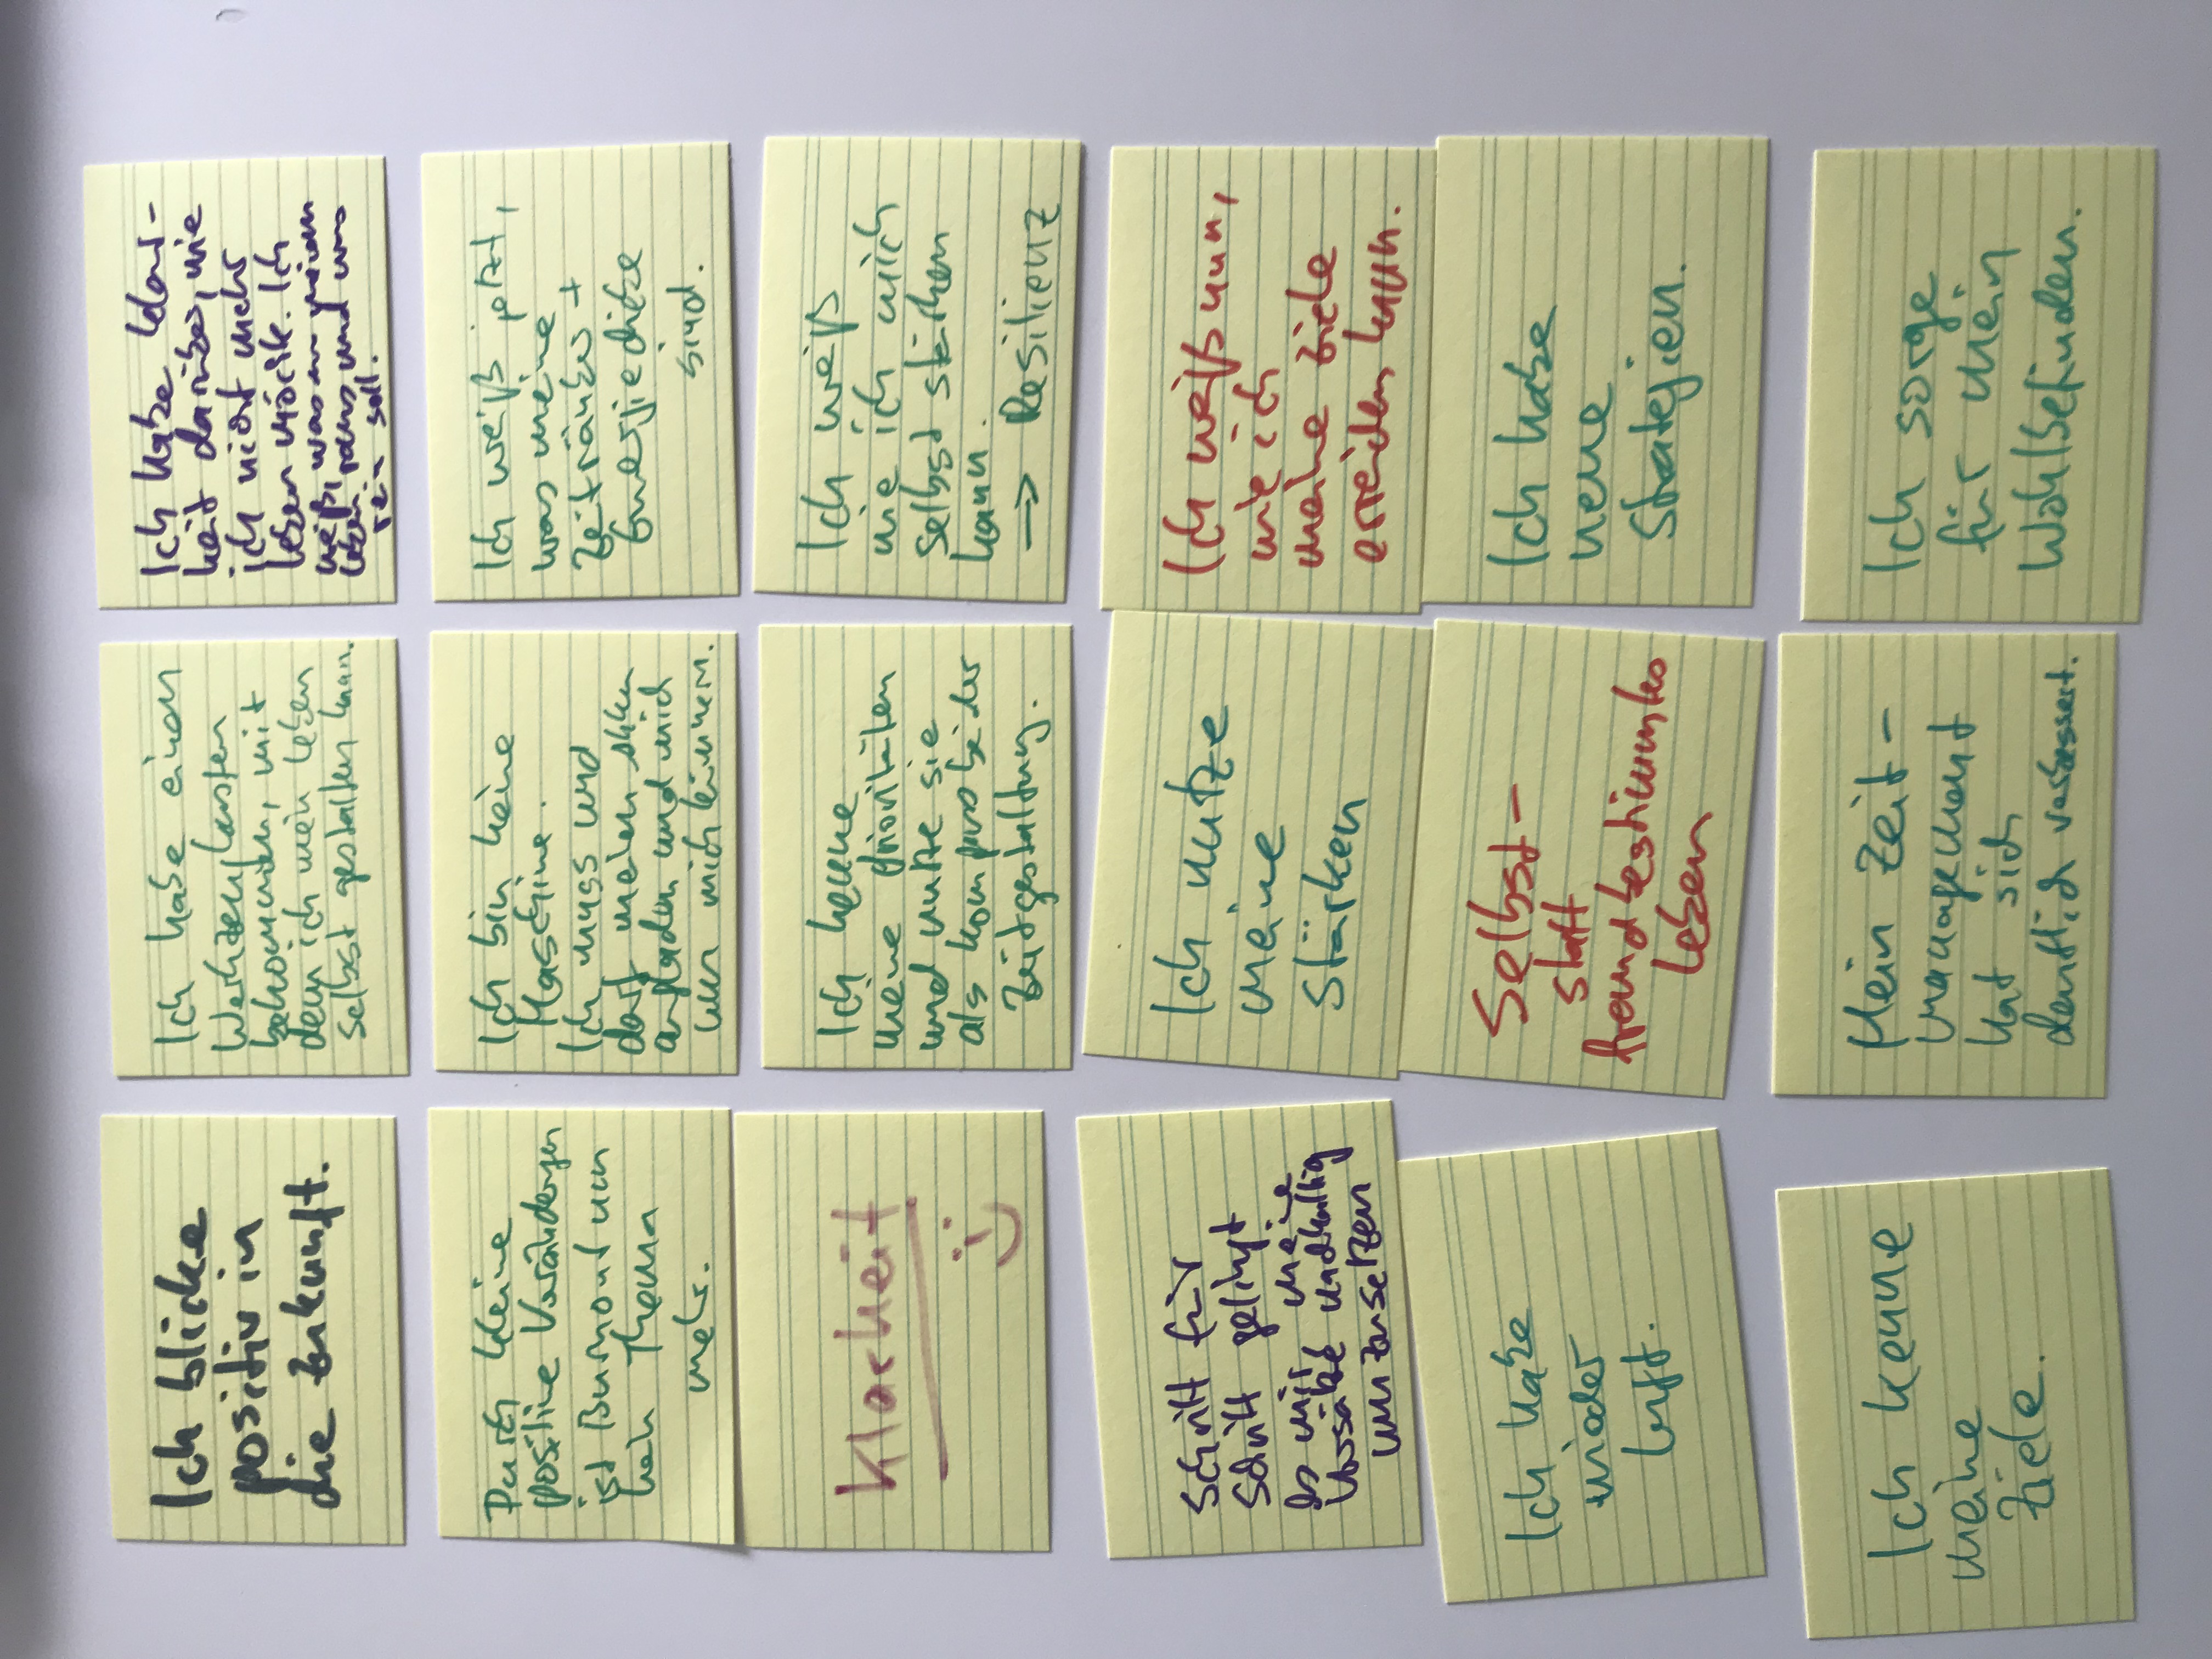 Ich blicke
positiv in
die Zukunft.
Ich habe einen
Werkzeugkasten
bekommen, mit
dem ich mein Leben
selbst gestalten kann.
Ich habe Klar-
heit darüber, wie
ich nicht mehr
leben möchte. Ich
weiß, was aus meinem
Leben raus und was
rein soll.
Durch kleine
positive Veränderungen
ist Burnout nun
kein Thema
mehr.
Ich bin keine
Maschine.
Ich muss und
darf meinen Akku
aufladen und mich
um mich kümmern.
Ich weiß jetzt,
was meine
Zeiträuber +
Energiediebe
sind.
Klarheit
:)
Ich kenne
meine Prioritäten
und nutze sie
als Kompass bei der
Zeitgestaltung.
Ich weiß
wie ich mich
selbst stärken
kann.
→ Resilienz
Schritt für
Schritt gelingt
es mir meine
Vorsätze nachhaltig
umzusetzen
Ich nutze
meine
Stärken
Ich weiß nun,
wie ich
meine Ziele
erreichen kann.
Ich habe
wieder
Luft.
Selbst-
statt
fremdbestimmtes
Leben
Ich habe
neue
Strategien.
Ich kenne
meine
Ziele.
Mein Zeit-
management
hat sich
deutlich verbessert.
Ich sorge
für mein
Wohlbefinden.